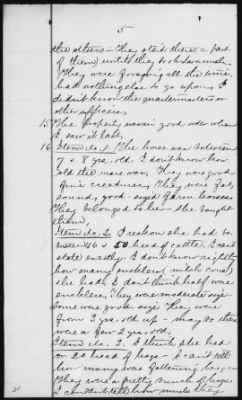 5
the others - They staid there a part
of them until they took Savannah.
They were foraging all the time,
had nothing else to go upon. I
didn't know the quartermaster or
other officers.
15 The property was in good order when
I saw it last.
16 Item No. 1. The horse was between
7 & 8 yrs. old. I don't know how
old the mare was. They were good
fine creatures. They were fat,
sound, good sized farm horses.
They belonged to her she bought
them.
Item No. 2. I reckon she had be
tween 46 & 50 head of cattle. I can't
state exactly. I don't know rightly
how many milch cows
she had. I don't think half was
They were moderate size
Some was good size. They was
from 3 yrs. old up - may be there
were a few 2 yrs. old.
Item No. 3. I think she had
or 20 head of hogs - I can't tell
how many was fattening hogs
They were a pretty bunch of hogs.
I couldn't tell how much they